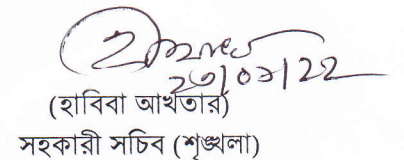 ২৩/০১/২২
(হাবিবা আখতার)
সহকারী সচিব (শৃঙ্খলা)